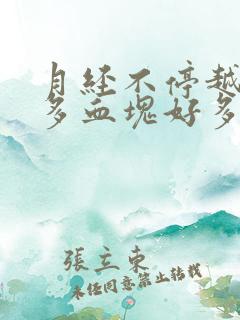 月经不停越
多血塊好多
張立东
未经同意禁止转载